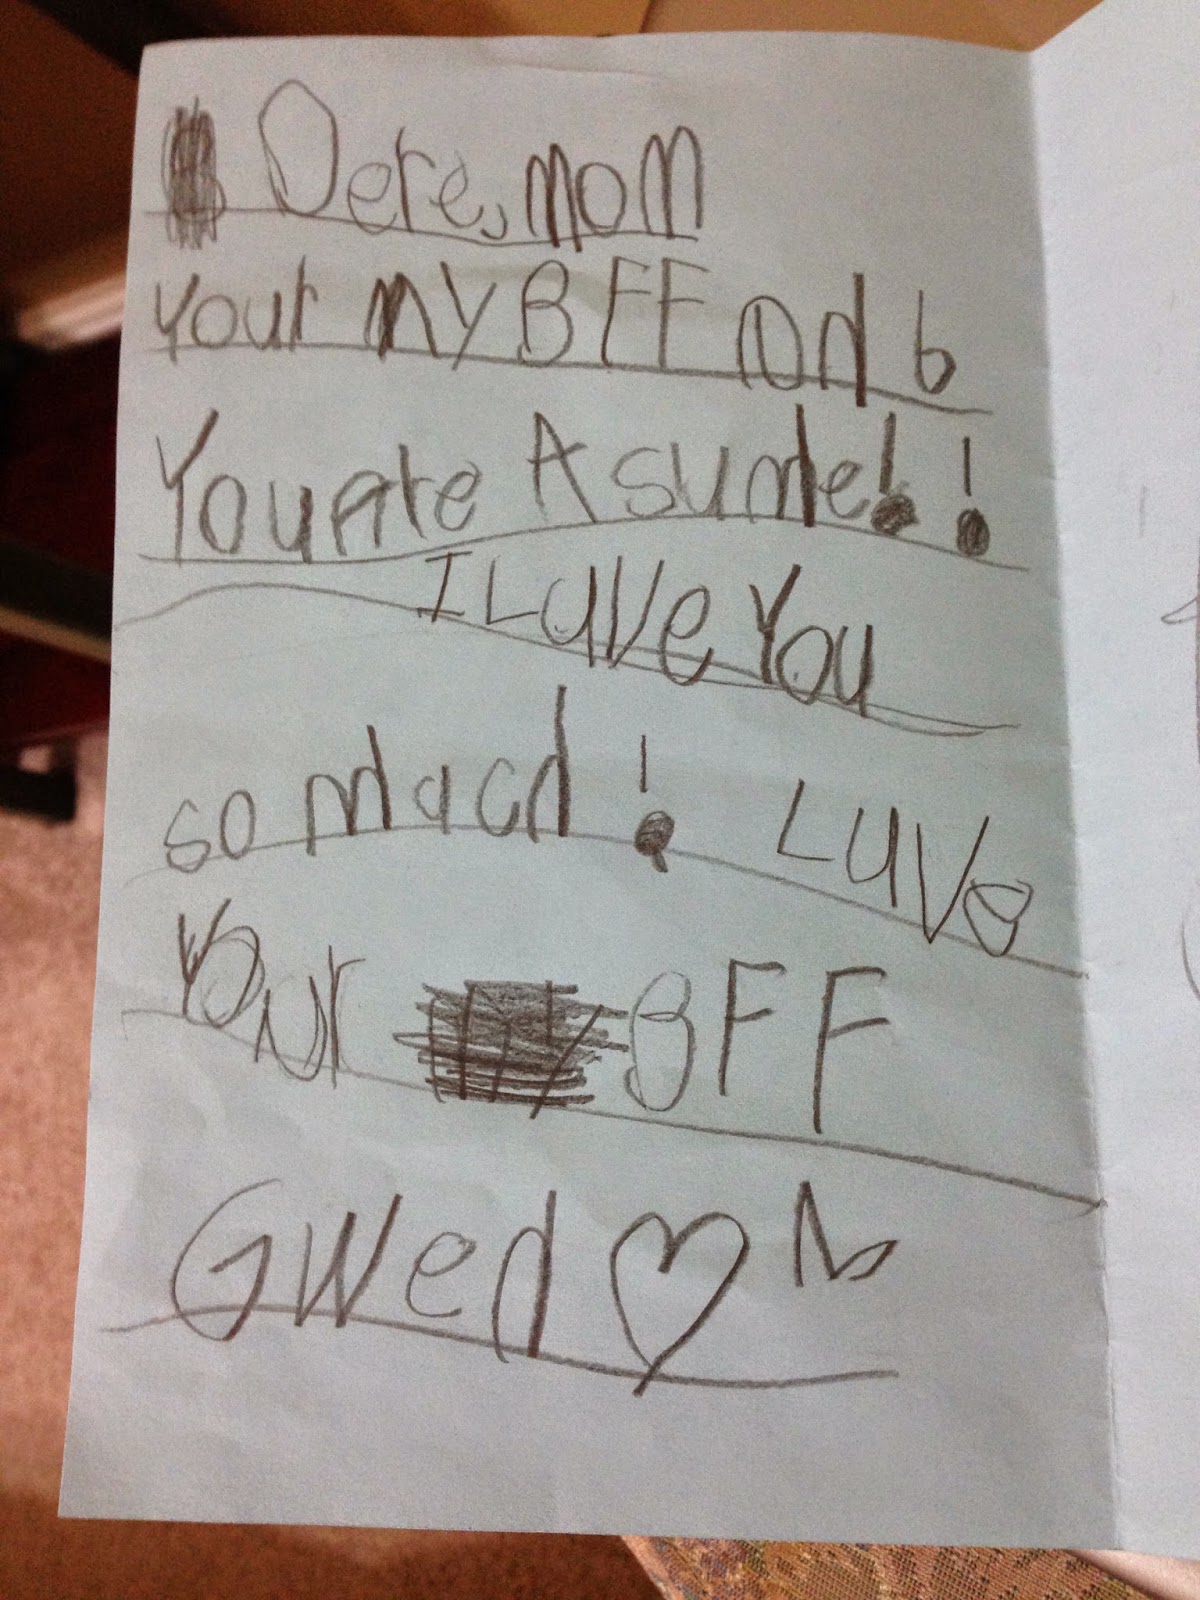 Dere, mom
your my BFF and
You are Asume!!
I Luve You
so mach! Luve
Your BFF
Gwen